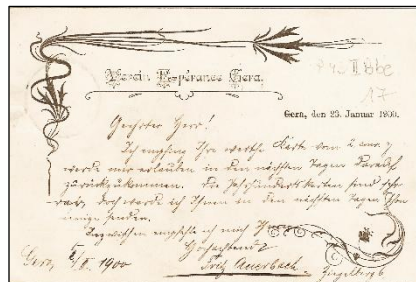 Verein Espérance Gera.
P 43 II Bbe
17
Gera, den 23. Januar 1900.
Geehrter Herr!
Ich empfing Ihre werthe Karte vom 2 cur. &
werde mir erlauben in den nächsten Tagen
zurückzukommen. Die Jahrhundertkarten sind sehr
rar, doch werde ich Ihnen in den nächsten Tagen
einige senden.
Inzwischen empfehle ich mich Ihnen
Hochachtend
Gera, 5/II. 1900
Fritz Auerbach